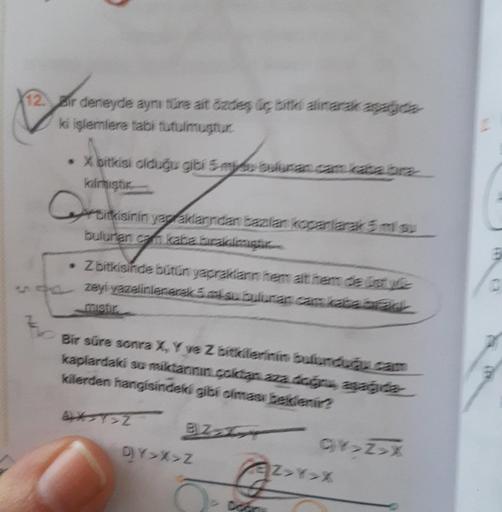 12. Bir deneyde aynı türe ait özdeş üç bitki alınarak aşağıda-
ki işlemlere tabi tutulmuştur.
• X bitkisi olduğu gibi 5 ml su bulunan cam kaba bıra-
kılmıştır.
Y bitkisinin yapraklarından bazıları koparılarak 5 ml su
bulunan cam kaba bırakılmıştır.
• Z bitkisinde bütün yaprakların hem alt hem de üst yü-
zeyi vazelinlenerek 5 ml su bulunan cam kaba bırakıl-
mıştır.
Bir süre sonra X, Y ve Z bitkilerinin bulunduğu cam
kaplardaki su miktarının çoktan aza doğru, aşağıda-
kilerden hangisindeki gibi olması beklenir?
A) X > Y > Z
B) Z > X > Y
C) Y > Z > X
D) Y > X > Z
E) Z > Y > X